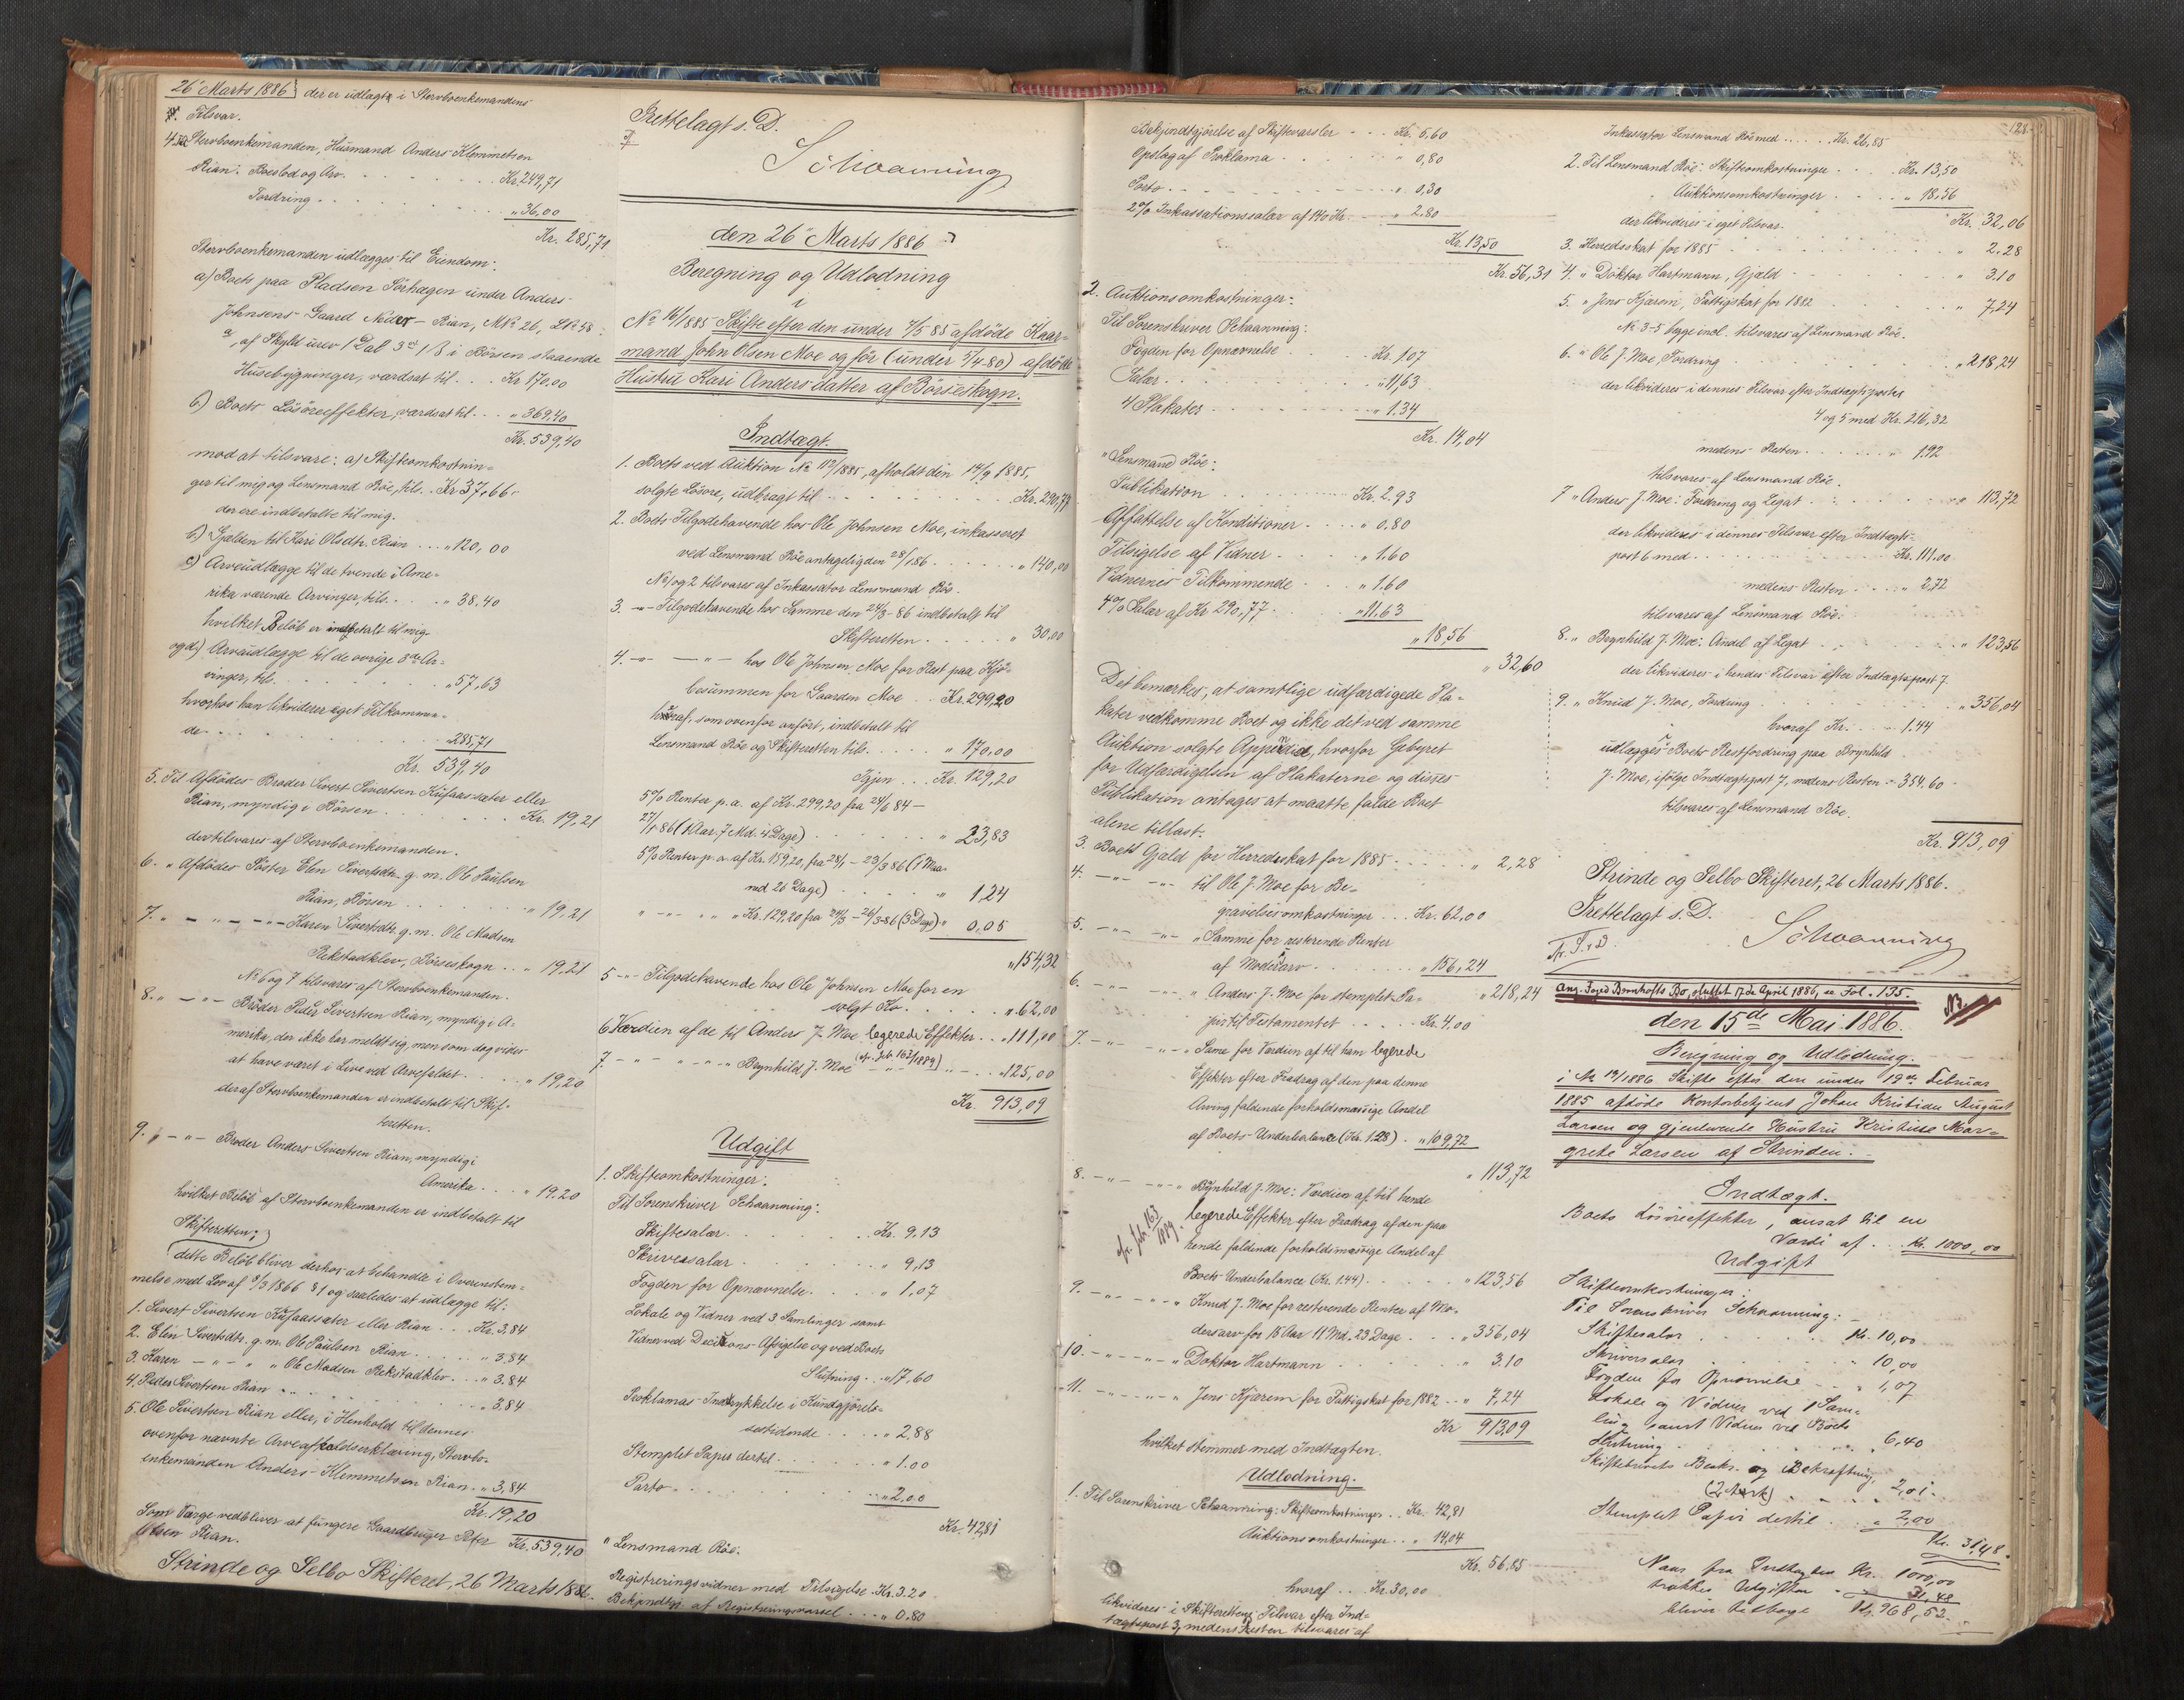 26' Marts 1886 der er udlagt i Stervboenkemandens
Tilsvar.
4. Til Stervboenkemanden, Husmand Anders Klemmetsen
Rian: Boeslod og Arv. . . . Kr. 249,71
Fordring . . . " 36,00
Kr. 285,71
Stervboenkemanden udlægges til Eiendom:
a) Boets paa Pladsen Sörhagen under Anders
Johnsens Gaard Neder-Rian, M.No 26, L.No 58
a, af Skyld urev. 1 Dal. 3 ort 1 ß i Börsen staaende
Husebygninger, værdsat til . . . Kr. 170,00
b) Boets Lösöreeffekter, værdsat til . . . " 369,40
Kr. 539,40
mod at tilsvare: a) Skifteomkostnin-
ger til mig og Lensmand Röe, tils. . Kr. 37,66
der ere indbetalte til mig.
b) Gjælden til Kari Olsdtr. Rian . . . " 120,00
c) Arveudlægge til de tvende i Ame-
rika værende Arvinger, tils. . . " 38.40
hvilket Belöb er indbetalt til mig.
og d) Arveudlægge til de övrige 3de Ar-
vinger, tils. . . . " 57,63
hvorhos han likviderer eget Tilkommen-
de . . . " 285,71
Kr. 539,40
5. Til Afdödes Broder Sivert Sivertsen Kufaassæter eller
Rian, myndig i Börsen . . . Kr. 19,21
der tilsvares af Stervboenkemanden.
6. " Afdödes Söster Elen Sivertsdtr. g. m. Ole Paulsen
Rian, Börsen . . . " 19,21
7. " - " - " - Karen Sivertsdtr. g. m. Ole Madsen
Rekstadklev, Börseskogn . . " 19,21
No 6 og 7 tilsvares af Stervboenkemanden.
8. " - " - Broder Peder Sivertsen Rian, myndig i A-
merika, der ikke har meldt sig, men som dog vides
at have været i Live ved Arvefaldet . . . " 19,20
der af Stervboenkemanden er indbetalt til Skif-
teretten.
9. " - " - Broder Anders Sivertsen Rian, myndig i
Amerika . . . " 19.20
hvilket Belöb af Stervboenkemanden er indbetalt til
Skifteretten;
dette Belöb bliver derhos at behandle i Overenstem-
melse med Lov af 9/3 1866 § 1 og saaledes at udlægge til:
1. Sivert Sivertsen Kufaassæter eller Rian . . . Kr. 3,84
2. Elin Sivertsdtr. g. m. Ole Paulsen Rian . . . " 3,84
3. Karen - " - " " Ole Madsen Rekstadklev . . . " 3.84
4. Peder Sivertsen Rian . . . " 3,84
5. Ole Sivertsen Rian eller, i Henhold til dennes
ovenfor nævnte Arveafkaldserklæring, Stervbo-
enkemanden Anders Klemmetsen Rian . " 3,84
Kr. 19,20
Kr. 539,40
Som Værge vedbliver at fungere Gaardbruger Peter
Olsen Rian.
Strinde og Selbo Skifteret, 26 Marts 1886.
Frettelagt s. D.
Schaanning
den 26' Marts 1886
Beregning og Udlodning
i
No 16/1885 Skifte efter den under 7/5 85 afdöde Kaar-
mand John Olsen Moe og för (under 5/4 80) afdöde
Hustru Kari Andersdatter af Börseskogn.
Indtægt.
1. Boets ved Auktion No 112/1885, afholdt den 14/9 1885,
solgte Lösöre, udbragt til . . . Kr. 290,77
2. Boets Tilgodehavende hos Ole Johnsen Moe, inkasseret
ved Lensmand Röe antageligden 28/1 86 . . . " 140,00
No 1 og 2 tilsvares af Inkassator Lensmand Röe.
3. - " - Tilgodehavende hos Samme den 24/3-86 indbetalt til
Skifteretten . . . " 30.00
4. - " - - " - hos Ole Johnsen Moe for Rest paa Kjö-
besummen for Gaarden Moe . . Kr. 299,20
hvoraf, som ovenfor anfört, indbetalt til
Lensmand Röe og Skifteretten tils. . . . " 170,00
Igjen . . . Kr. 129,20
5 % Renter p. a. af Kr. 299,20 fra 24/6 84 -
27/1 86 (1 Aar 7 Md. 4 Dage) . . . " 23,83
5 % Renter p. a. af Kr. 159,20, fra 28/1 - 23/3 86 (1 Maa-
ned 26 Dage) . . . " 1,24
" - " - " " " Kr. 129,20 fra 24/3 - 26/3-86 (3 Dage) " 0,05
" 154,32
5 - " - Tilgodehavende hos Ole Johnsen Moe for en
solgt Ko . . . " 62,00
6 Værdien af de til Anders J. Moe legerede Effekter . . " 111,00
7. - " - " - " - Brynhild J. Moe (cfr. Jnb. 163/1889) " - . . " 125,00
Kr. 913,09
Udgift
1. Skifteomkostninger.
Til Sorenskriver Schaanning:
Skiftesalær . . . Kr. 9,13
Skriversalær . . . " 9,13
Fogden for Opnævnelse . . . " 1,07
Lokale og Vidner ved 3 Samlinger samt
Vidner ved Decisions-Afsigelse og ved Boets
Slutning . . " 17,60
Proklamas Indrykkelse i Kundgjörels-
estidende . . . " 2.88
Stemplet Papir dertil . . . " 1.00
Porto . . . " 2,00
Kr. 42,81
" Lensmand Röe:
Registreringsvidner med Tilsigelse . Kr. 3.20
Bekjendtgj. af Registreringsvarsel . . . " 0.80
Bekjendtgjörelse af Skiftevarsler . . . Kr. 5.60
Opslag af Proklama . . . " 0,80
Porto . . . " 0,30
2 % Inkassationssalær af 140 Kr. . . . " 2.80
Kr. 13,50
Kr. 56,31
2. Auktionsomkostninger:
Til Sorenskriver Schaanning:
Fogden for Opnævnelse . . . Kr. 1.07
Salær . . . " 11,63
4 Plakater . . . " 1.34
Kr. 14,04
" Lensmand Röe:
Publikation . . . Kr. 2.93
Affattelse af Konditioner . . . " 0.80
Tilsigelse af Vidner . . . " 1.60
Vidnernes Tilkommende . . . " 1.60
4 % Salær af Kr. 290,77 . . . " 11.63
" 18,56
" 32,60
Det bemærkes, at samtlige udfærdigede Pla-
kater vedkomme Boet og ikke det ved samme
Auktion solgte Appendix, hvorfor Gebyret
for Udfærdigelsen af Plakaterne og disses
Publikation antages at maatte falde Boet
alene tillast.
3. Boets Gjæld for Herredsskat for 1885 . . . " 2,28
4. - " - - " - til Ole J. Moe for Be-
gravelsesomkostninger . . . Kr. 62,00
5. - " - - " - " Samme for resterende Renter
af Modersarv . . . " 156,24
" 218,24
6. - " - - " - " Anders J. Moe for stemplet Pa-
pir til Testamentet . . . Kr. 4,00
7. - " - - " - " Same for Værdien af til ham legerede
Effekter efter Fradrag af den paa denne
Arving faldende forholdsmæssige Andel
af Boets Underbalance (Kr. 1.28) . " 109,72
" 113,72
8. - " - - " - " Brynhild J. Moe: Værdien af til hende
legerede Effekter efter Fradrag af den paa
hende faldende forholdsmæssige Andel af
Boets Underbalance (Kr. 1.44) . . . " 123,56
cfr. Jnb. 163/1889.
9. - " - - " - " Knud J. Moe for resterende Renter af Mo-
dersarv for 15 Aar 11 Md. 23 Dage . . . " 356,04
10. - " - - " - " Doktor Hartmann . . . " 3.10
11. - " - - " - " Jens Kjærem for Fattigskat for 1882 . . " 7,24
Kr. 913,09
hvilket stemmer med Indtægten.
Udlodning.
1. Til Sorenskriver Schaanning: Skifteomkostninger . . Kr. 42,81
Auktionsomkostninger . . " 14,04
Kr. 56,85
hvoraf . . Kr. 30,00
likvideres i Skifterettens Tilsvar efter Ind-
tægtspost 3, medens Resten tilsvares af
128.
Inkassator Lensmand Röe med . . . Kr. 26,85
2. Til Lensmand Röe: Skifteomkostninger . . . Kr. 13,50
Auktionsomkostninger . . . " 18,56
Kr. 32,06
der likvideres i eget Tilsvar.
3. Herredsskat for 1885 . . . " 2.28
4. " Doktor Hartmann, Gjæld . . . " 3.10
5. " Jens Kjærem, Fattigskat for 1882 . . . " 7,24
No 3-5 begge incl. tilsvares af Lensmand Röe.
6. " Ole J. Moe, Fordring . . . " 218,24
der likvideres i dennes Tilsvar efter Indtægtsposter
4 og 5 med Kr. 216,32
medens Resten . . . " 1.92
tilsvares af Lensmand Röe.
7 " Anders J. Moe: Fordring og Legat . . . " 113,72
der likvideres i dennes Tilsvar efter Indtægts-
post 6 med . . . Kr. 111.00
medens Resten . . . " 2,72
tilsvares af Lensmand Röe.
8. " Brynhild J. Moe: Andel af Legat . . . " 123,56
der likvideres i hendes Tilsvar efter Indtægtspost 7.
9. " Knud J. Moe, Fordring . . . " 356,04
hvoraf Kr. . . . 1.44
udlægges Boets Restfordring paa Brynhild
J. Moe, ifölge Indtægtspost 7, medens Resten - 354.60
tilsvares af Lensmand Röe.
Kr. 913,09
Strinde og Selbo Skifteret, 26 Marts 1886.
Frettelagt s. D.
Schaanning
Ang. Foged Bernhofts Bo, sluttet 17de April 1886, se Fol. 135.
den 15de Mai 1886.
Beregning og Udlodning.
i No 19/1886 Skifte efter den under 19de Februar
1885 afdöde Kontorbetjent Johan Kristian August
Larsen og gjenlevende Hustru Kristine Mar-
grete Larsen af Strinden.
Indtægt.
Boets Lösöreeffekter, ansat til en
Værdi af . . Kr. 1000,00
Udgift
Skifteomkostninger:
Til Sorenskriver Schaanning:
Skiftesalær . . . Kr. 10,00
Skriversalær . . . " 10,00
Fogden for Opnævnelse . . . " 1,07
Lokale og Vidner ved 1 Sam-
ling samt Vidner ved Boets
Slutning . . . " 6,40
Skiftebrevets Besk. og Bekræftning
(2 Ark) . . . " 2,01
Stemplet Papir dertil . . . " 2,00
Kr. 31,48
Naar fra Indtægten Kr. 1000,00
trækkes Udgiften " 31,48
bliver tilbage Kr. 968,52